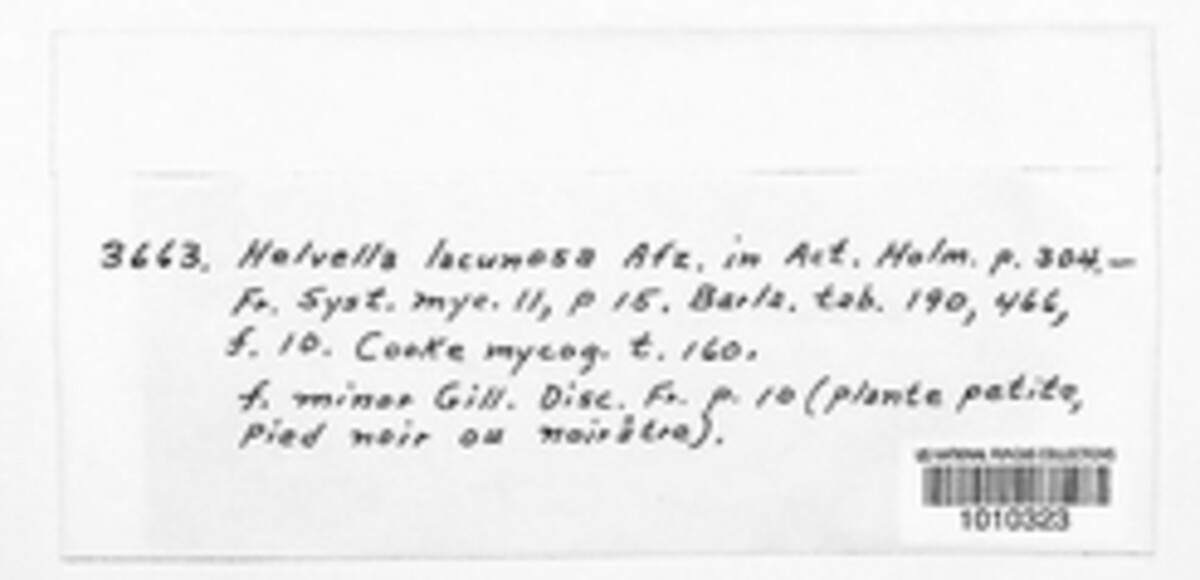 3663. Helvella lacunosa Afz. in Act. Holm. p. 304.—
Fr. Syst. myc. II, p 15. Barla. tab. 190, 466,
f. 10. Cooke mycog. t. 160.
f. minor Gill. Disc. Fr. p. 10 (plante petite,
pied noir ou noirâtre).
US NATIONAL FUNGUS COLLECTIONS
1010323